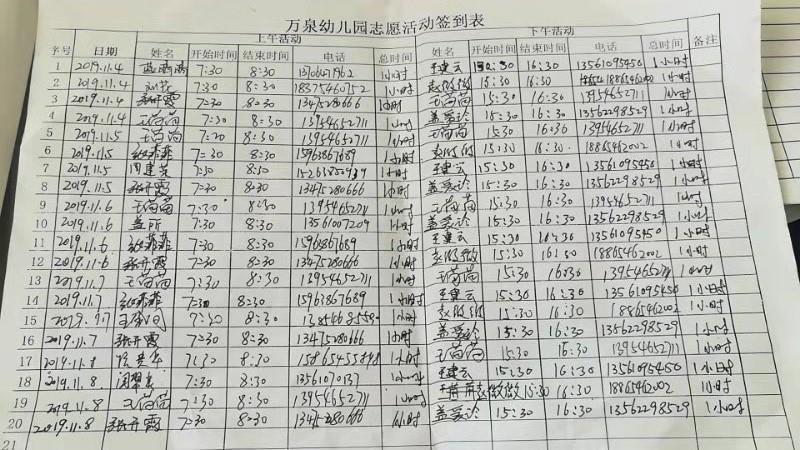 万泉幼儿园志愿活动签到表
上午活动 下午活动
序号 日期 姓名 开始时间 结束时间 电话 总时间 姓名 开始时间 结束时间 电话 总时间 备注
1 2019.11.4 7:30 8:30 1小时 王建云 15:30 16:30 13561095450 1小时
2 2019.11.4 7:30 8:30 18375460752 1小时 15:30 16:30 18865462002 1小时
3 2019.11.4 张开霞 7:30 8:30 13475280666 1小时 王苘苘 15:30 16:30 13954652711 1小时
4 2019.11.4 王苘苘 7:30 8:30 13954652711 1小时 15:30 16:30 13562298529 1小时
5 2019.11.5 王苘苘 7:30 8:30 13954652711 1小时 王苘苘 15:30 16:30 13954652711 1小时
6 2019.11.5 7:30 8:30 15963867689 1小时 15:30 16:30 18865462002 1小时
7 2019.11.5 7:30 8:30 1小时 王建云 15:30 16:30 13561095450 1小时
8 2019.11.5 张开霞 7:30 8:30 13475280666 1小时 15:30 16:30 13562298529 1小时
9 2019.11.6 王苘苘 7:30 8:30 13954652711 1小时 王苘苘 15:30 16:30 13954652711 1小时
10 2019.11.6 7:30 8:30 13561007209 1小时 15:30 16:30 13562298529 1小时
11 2019.11.6 7:30 8:30 15963867689 1小时 王建云 15:30 16:30 13561095450 1小时
12 2019.11.6 张开霞 7:30 8:30 13475280666 1小时 15:30 16:30 18865462002 1小时
13 2019.11.7 王苘苘 7:30 8:30 13954652711 1小时 王苘苘 15:30 16:30 13954652711 1小时
14 2019.11.7 7:30 8:30 15963867689 1小时 王建云 15:30 16:30 13561095450 1小时
15 2019.11.7 7:30 8:30 1小时 15:30 16:30 18865462002 1小时
16 2019.11.7 张开霞 7:30 8:30 13475280666 1小时 15:30 16:30 13562298529 1小时
17 2019.11.8 7:30 8:30 1小时 王苘苘 15:30 16:30 13954652711 1小时
18 2019.11.8 7:30 8:30 1小时 王建云 15:30 16:30 13561095450 1小时
19 2019.11.8 王苘苘 7:30 8:30 13954652711 1小时 15:30 16:30 18865462002 1小时
20 2019.11.8 张开霞 7:30 8:30 13475280666 1小时 15:30 16:30 13562298529 1小时
21